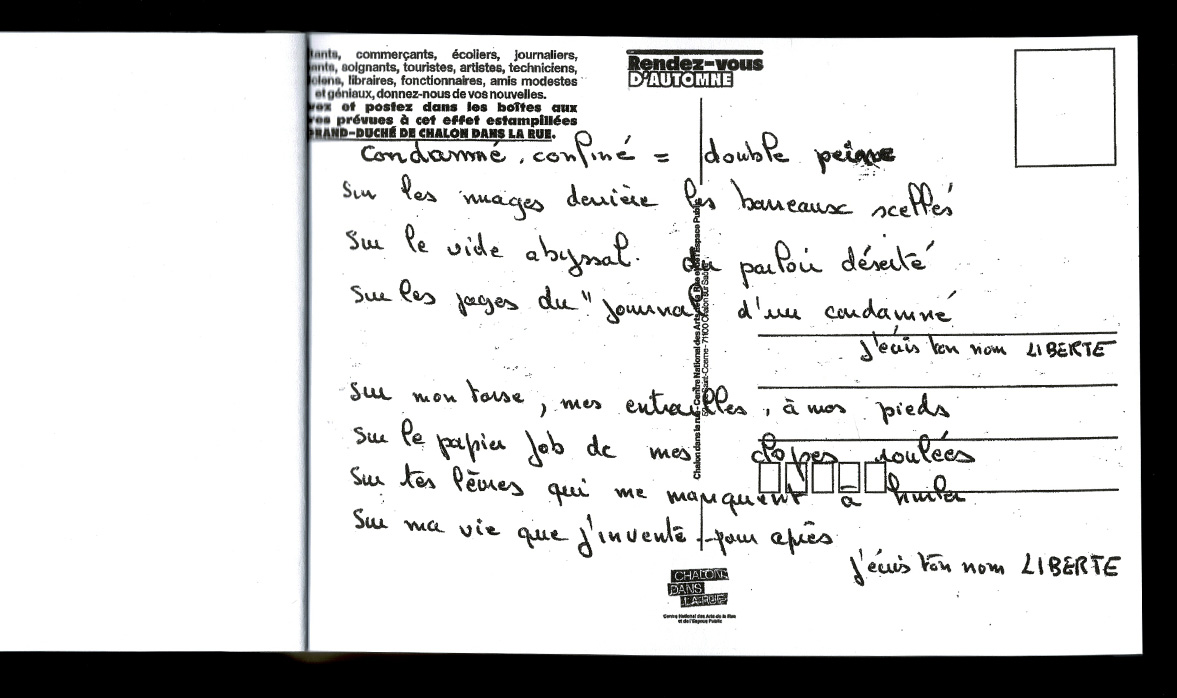 tants, commerçants, écoliers, journaliers,
soignants, touristes, artistes, techniciens,
libraires, fonctionnaires, amis modestes
et géniaux, donnez-nous de vos nouvelles.
et postez dans les boîtes aux
prévues à cet effet estampillées
GRAND-DUCHÉ DE CHALON DANS LA RUE.
Rendez-vous
D'AUTOMNE
Condamné, confiné = double peine
Sur les nuages derrière les barreaux scellés
Sur le vide abyssal du parloir déserté
Sur les pages du "journal d'un condamné
j'écris ton nom LIBERTE
Sur mon torse, mes entrailles, à mos pieds
Sur le papier Job de mes clopes roulées
Sur tes lèvres qui me manquent à hurler
Sur ma vie que j'invente pour après
j'écris ton nom LIBERTE
Chalon dans la rue - Centre National des Arts de la Rue et de l'Espace Public
Saint-Cosme - 71100 Chalon sur Saône
CHALON
DANS
LA RUE
Centre National des Arts de la Rue
et de l'Espace Public